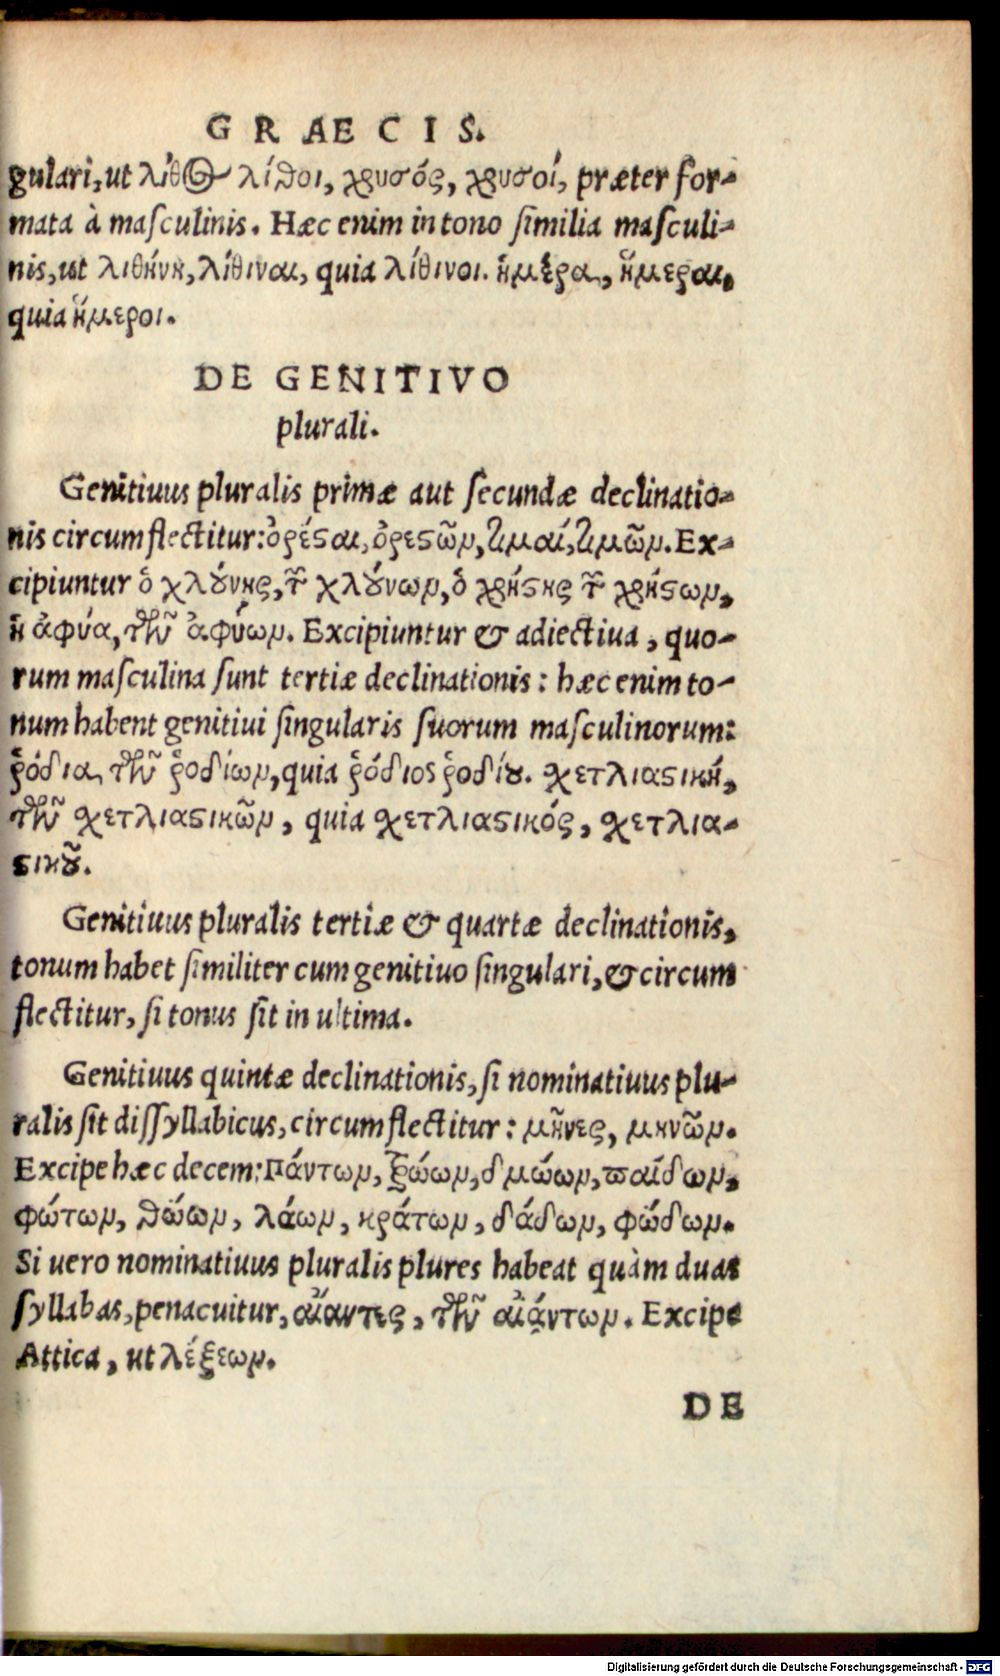 GRAECIS.
gulari, ut λίθος λίθοι, χρυσός, χρυσοί, præter for-
mata à masculinis. Hæc enim in tono similia masculi-
nis, ut λιθίνη, λίθιναι, quia λίθινοι. ἡμέρα, ἥμεραι,
quia ἥμεροι.
DE GENITIVO
plurali.
Genitiuus pluralis primæ aut secundæ declinatio-
nis circumflectitur: ὀρέϛαι, ὀρεϛῶν, τιμαί, τιμῶν. Ex-
cipiuntur ὁ χλούνης, τῶν χλούνων, ὁ χρήϛης τῶν χρήϛων,
ἡ ἀφύα, τῶν ἀφύων. Excipiuntur & adiectiua, quo-
rum masculina sunt tertiæ declinationis: hæc enim to-
num habent genitiui singularis suorum masculinorum:
ῥόδια, τῶν ῥοδίων, quia ῥόδιος ῥοδίου. σχετλιαϛική,
τῶν σχετλιαϛικῶν, quia σχετλιαϛικός, σχετλια-
ϛικοῦ.
Genitiuus pluralis tertiæ & quartæ declinationis,
tonum habet similiter cum genitiuo singulari, & circum
flectitur, si tonus sit in ultima.
Genitiuus quintæ declinationis, si nominatiuus plu-
ralis sit dissyllabicus, circumflectitur: μῆνες, μηνῶν.
Excipe hæc decem: Πάντων, Τρώων, δμώων, παίδων,
φώτων, θώων, λάων, κράτων, δάδων, φώδων.
Si uero nominatiuus pluralis plures habeat quàm duas
syllabas, penacuitur, αἴαντες, τῶν αἰάντων. Excipe
Attica, ut λέξεων.
DE
Digitalisierung gefördert durch die Deutsche Forschungsgemeinschaft - DFG